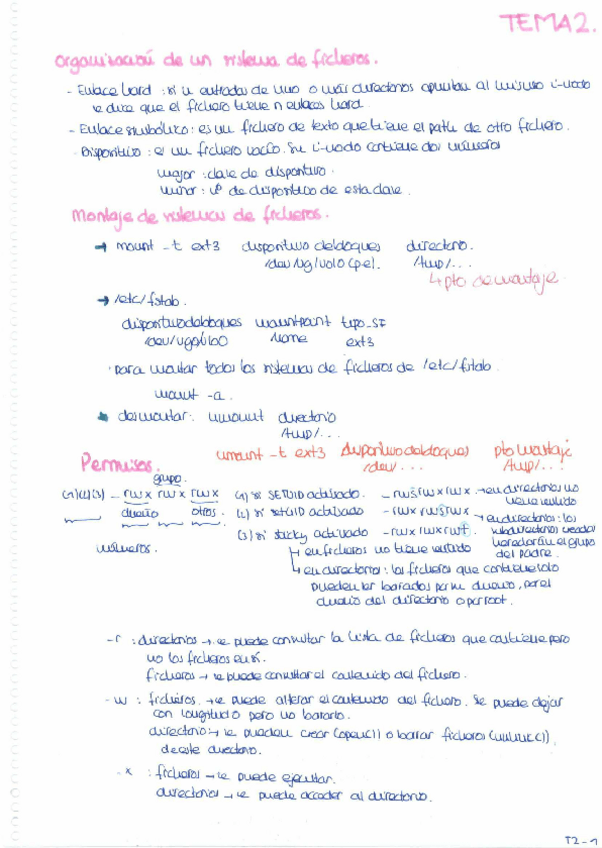 TEMA 2.
Organización de un sistema de ficheros.
- Enlace hard : si n entradas de uno o más directorios apuntan al mismo i-nodo
se dice que el fichero tiene n enlaces hard.
- Enlace simbólico : es un fichero de texto que tiene el path de otro fichero.
- Dispositivo : es un fichero vacío. Su i-nodo contiene dos números
major : clase de dispositivo.
minor : nº de dispositivo de esta clase.
Montaje de sistemas de ficheros.
→ mount -t ext3 dispositivo de bloques directorio.
/dev/vg/vol0 (p.e). /tmp/...
↳ pto de montaje.
→ /etc/fstab.
dispositivo de bloques mountpoint tipo_SF
/home ext3
· para montar todos los sistemas de ficheros de /etc/fstab.
mount -a.
desmontar : umount directorio
/tmp/...
umount -t ext3 dispositivo de bloques pto montaje
/dev/... /tmp/...
Permisos.
grupo.
(1)(2)(3) - rwx rwx rwx
dueño otros.
números.
(1) si SETUID activado. - rws rwx rwx → en directorios no
tiene sentido
(2) si setGID activado - rwx rws rwx → en directorios : los
subdirectorios creados
heredarán el grupo
del padre.
(3) si sticky activado - rwx rwx rwt
↳ en ficheros no tiene sentido
↳ en directorios : los ficheros que contiene solo
pueden ser borrados por su dueño, por el
dueño del directorio o por root.
- r : directorios → se puede consultar la lista de ficheros que contiene pero
no los ficheros en sí.
ficheros → se puede consultar el contenido del fichero.
- w : ficheros. → se puede alterar el contenido del fichero. Se puede dejar
con longitud 0 pero no borarlo.
directorio → se pueden crear (open()) o borrar ficheros (unlink())
de este directorio.
- x : ficheros → se puede ejecutar.
directorios → se puede acceder al directorio.
T2 - 1